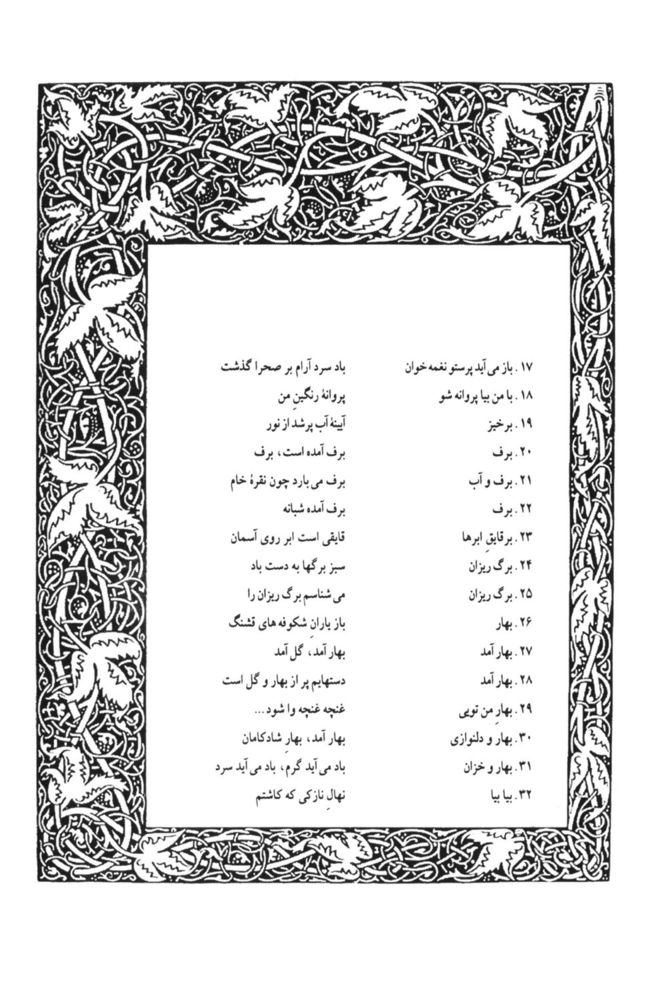 ۱۷. باز می‌آید پرستو نغمه‌خوان باد سرد آرام بر صحرا گذشت
۱۸. با من بیا پروانه شو پروانهٔ رنگینِ من
۱۹. برخیز آیینهٔ آب پرشد از نور
۲۰. برف برف آمده است، برف
۲۱. برف و آب برف می‌بارد چون نقرهٔ خام
۲۲. برف برف آمده شبانه
۲۳. برقایقِ ابرها قایقی است ابر روی آسمان
۲۴. برگ ریزان سبز برگها به دست باد
۲۵. برگ ریزان می‌شناسم برگ ریزان را
۲۶. بهار باز بارانِ شکوفه‌های قشنگ
۲۷. بهار آمد بهار آمد، گل آمد
۲۸. بهار آمد دستهایم پر از بهار و گل است
۲۹. بهارِ من تویی غنچه غنچه وا شود...
۳۰. بهار و دلنوازی بهار آمد، بهارِ شادکامان
۳۱. بهار و خزان باد می‌آید گرم، باد می‌آید سرد
۳۲. بیا بیا نهالِ نازکی که کاشتم